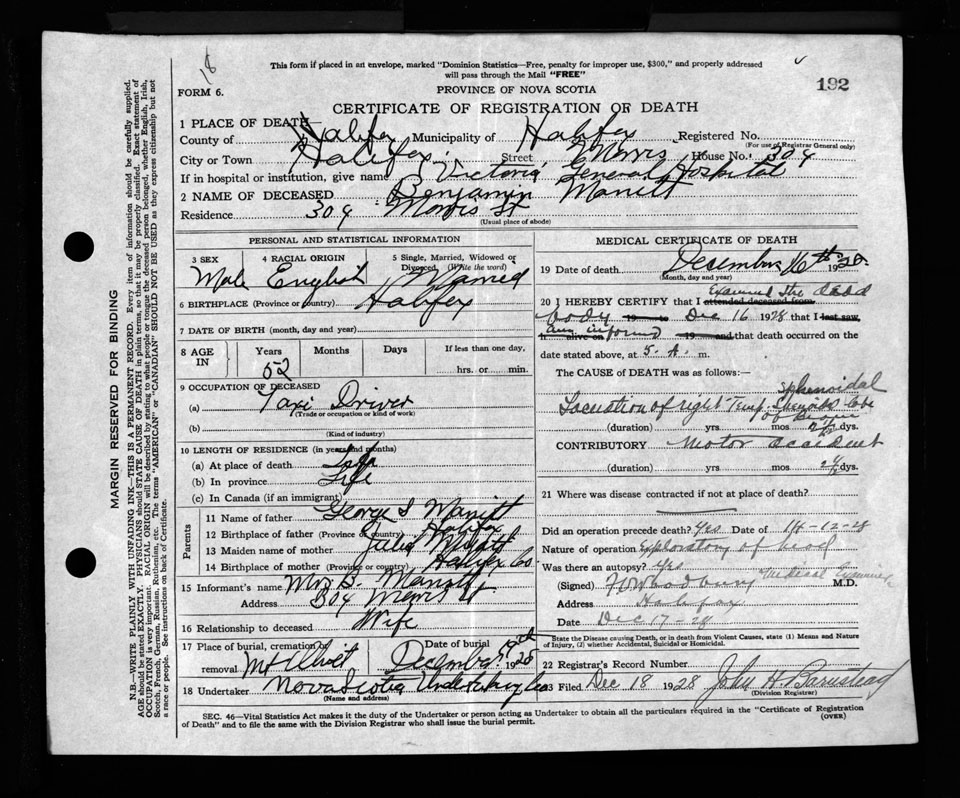 18
This form if placed in an envelope, marked "Dominion Statistics—Free, penalty for improper use, $300," and properly addressed
will pass through the Mail "FREE"
192
FORM 6.
PROVINCE OF NOVA SCOTIA
CERTIFICATE OF REGISTRATION OF DEATH
1 PLACE OF DEATH—
County of Halifax Municipality of Halifax Registered No.
(For use of Registrar General only)
City or Town Halifax Street Morris House No. 309
If in hospital or institution, give name Victoria General Hospital
2 NAME OF DECEASED Benjamin
Residence 309 Morris St
(Usual place of abode)
PERSONAL AND STATISTICAL INFORMATION
3 SEX 4 RACIAL ORIGIN 5 Single, Married, Widowed or
Divorced (Write the word)
Male English Married
6 BIRTHPLACE (Province or country) Halifax
7 DATE OF BIRTH (month, day and year)
8 AGE IN Years Months Days If less than one day,
52 hrs. or min.
9 OCCUPATION OF DECEASED
(a) Taxi Driver
(Trade of occupation or kind of work)
(b)
(Kind of industry)
10 LENGTH OF RESIDENCE (in years and months)
(a) At place of death Life
(b) In province Life
(c) In Canada (if an immigrant)
Parents
11 Name of father George S
12 Birthplace of father (Province or country) Halifax
13 Maiden name of mother Julia
14 Birthplace of mother (Province or country) Halifax Co.
15 Informant's name Mrs B.
Address 309 Morris St
16 Relationship to deceased Wife
17 Place of burial, cremation or Date of burial
removal Mt Olivet December 1928
18 Undertaker Nova Scotia Undertaking Co
(Name and address)
MEDICAL CERTIFICATE OF DEATH
19 Date of death December 16th 1928
(Month, day and year)
Examined the dead
20 I HEREBY CERTIFY that I attended deceased from
body 19 to Dec 16 1928 that I last saw
am informed
h alive on 19 and that death occurred on the
date stated above, at 5. A. m.
The CAUSE of DEATH was as follows:—
sphenoidal
of right
of brain
(duration) yrs mos 2½ dys.
CONTRIBUTORY Motor accident
(duration) yrs mos 2½ dys.
21 Where was disease contracted if not at place of death?
Did an operation precede death? Yes Date of 14-12-28
Nature of operation Exploratory of head
Was there an autopsy? Yes
(Signed) Medical Examiner M.D.
Address Halifax
Date Dec 17-28
State the Disease causing Death, or in death from Violent Causes, state (1) Means and
Nature of Injury, (2) whether Accidental, Suicidal or Homicidal.
22 Registrar's Record Number
23 Filed Dec 18 1928 John H. Barnstead
(Division Registrar)
SEC. 46—Vital Statistics Act makes it the duty of the Undertaker or person acting as Undertaker to obtain all the particulars required in the "Certificate of Registration
of Death" and to file the same with the Division Registrar who shall issue the burial permit.
(OVER)
MARGIN RESERVED FOR BINDING
N.B.—WRITE PLAINLY WITH UNFADING INK—THIS IS A PERMANENT RECORD. Every item of information should be carefully supplied.
AGE should be stated EXACTLY. PHYSICIANS should STATE CAUSE OF DEATH in plain terms, so that it may be properly classified. Exact statement of
OCCUPATION is very important. RACIAL ORIGIN will be described by stating to what people or tongue the deceased person belonged, whether English, Irish,
Scotch, French, German, Russian, Ruthenian, etc. The terms "AMERICAN" or "CANADIAN" SHOULD NOT BE USED as they express citizenship but not
a race or people. See instructions on back of Certificate.